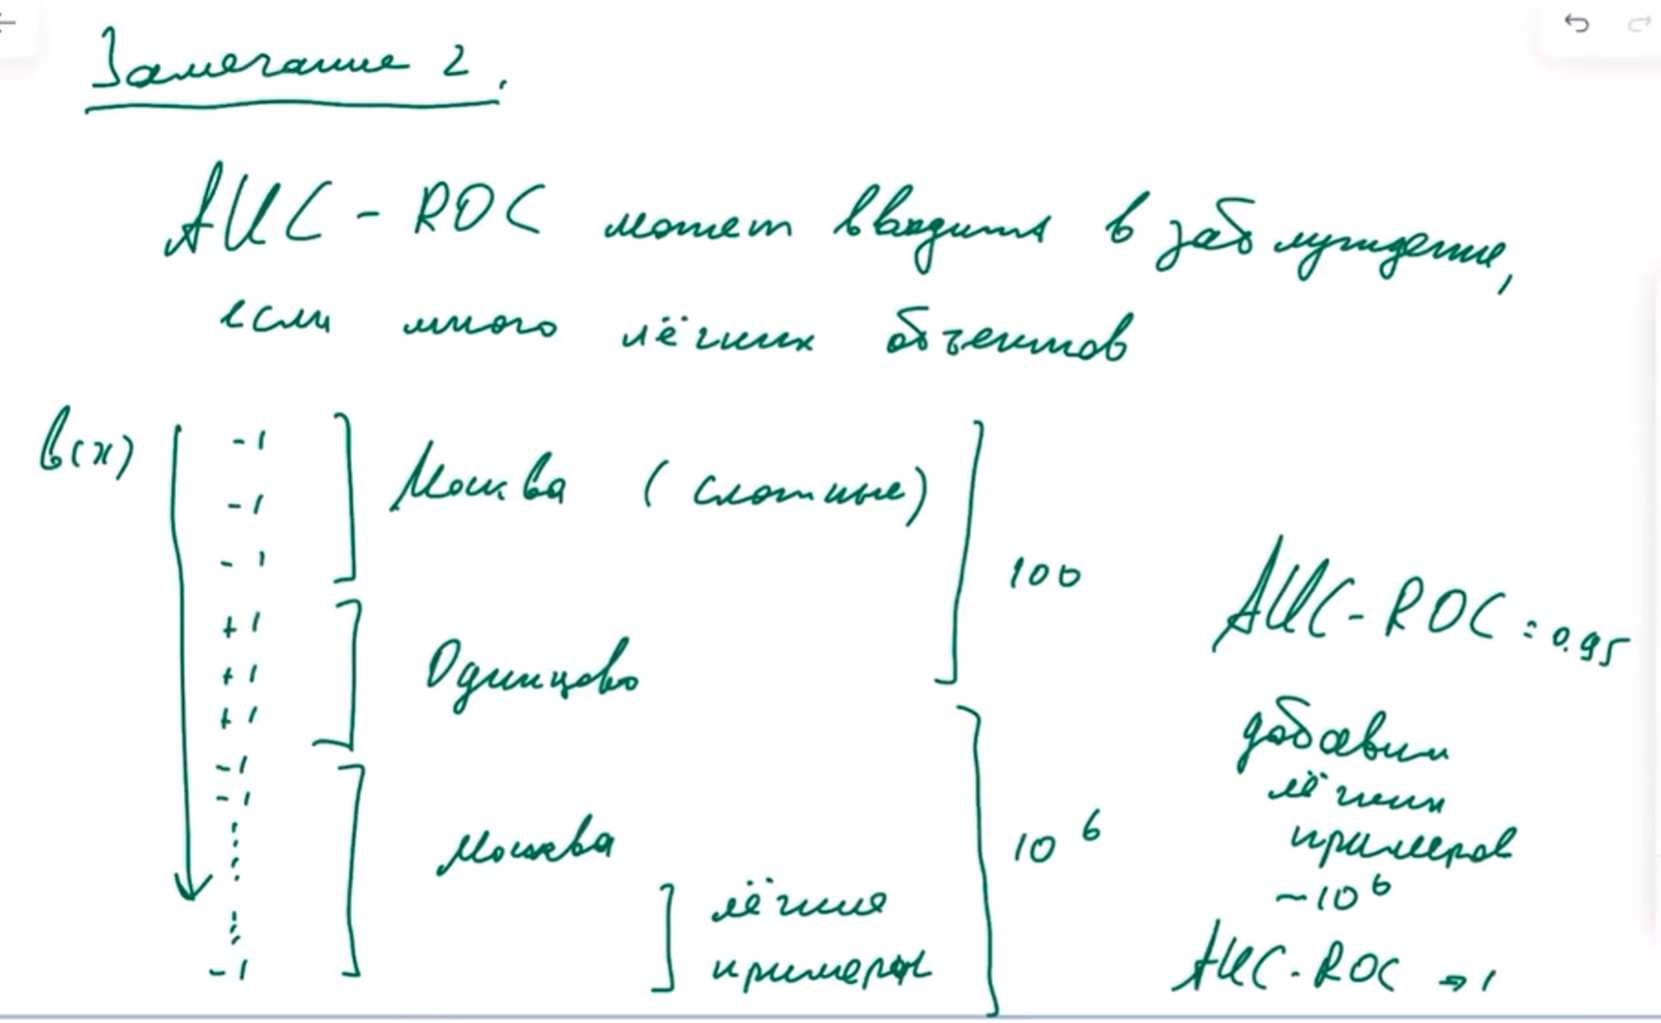 Замечание 2.
AUC-ROC может вводить в заблуждение,
если много лёгких объектов
b(x)
-1
-1
-1
+1
+1
+1
-1
-1
-1
Москва (сложные)
Одинцово
Москва
лёгкие
примеры
100
10^6
AUC-ROC = 0.95
добавим
лёгких
примеров
~10^6
AUC-ROC → 1